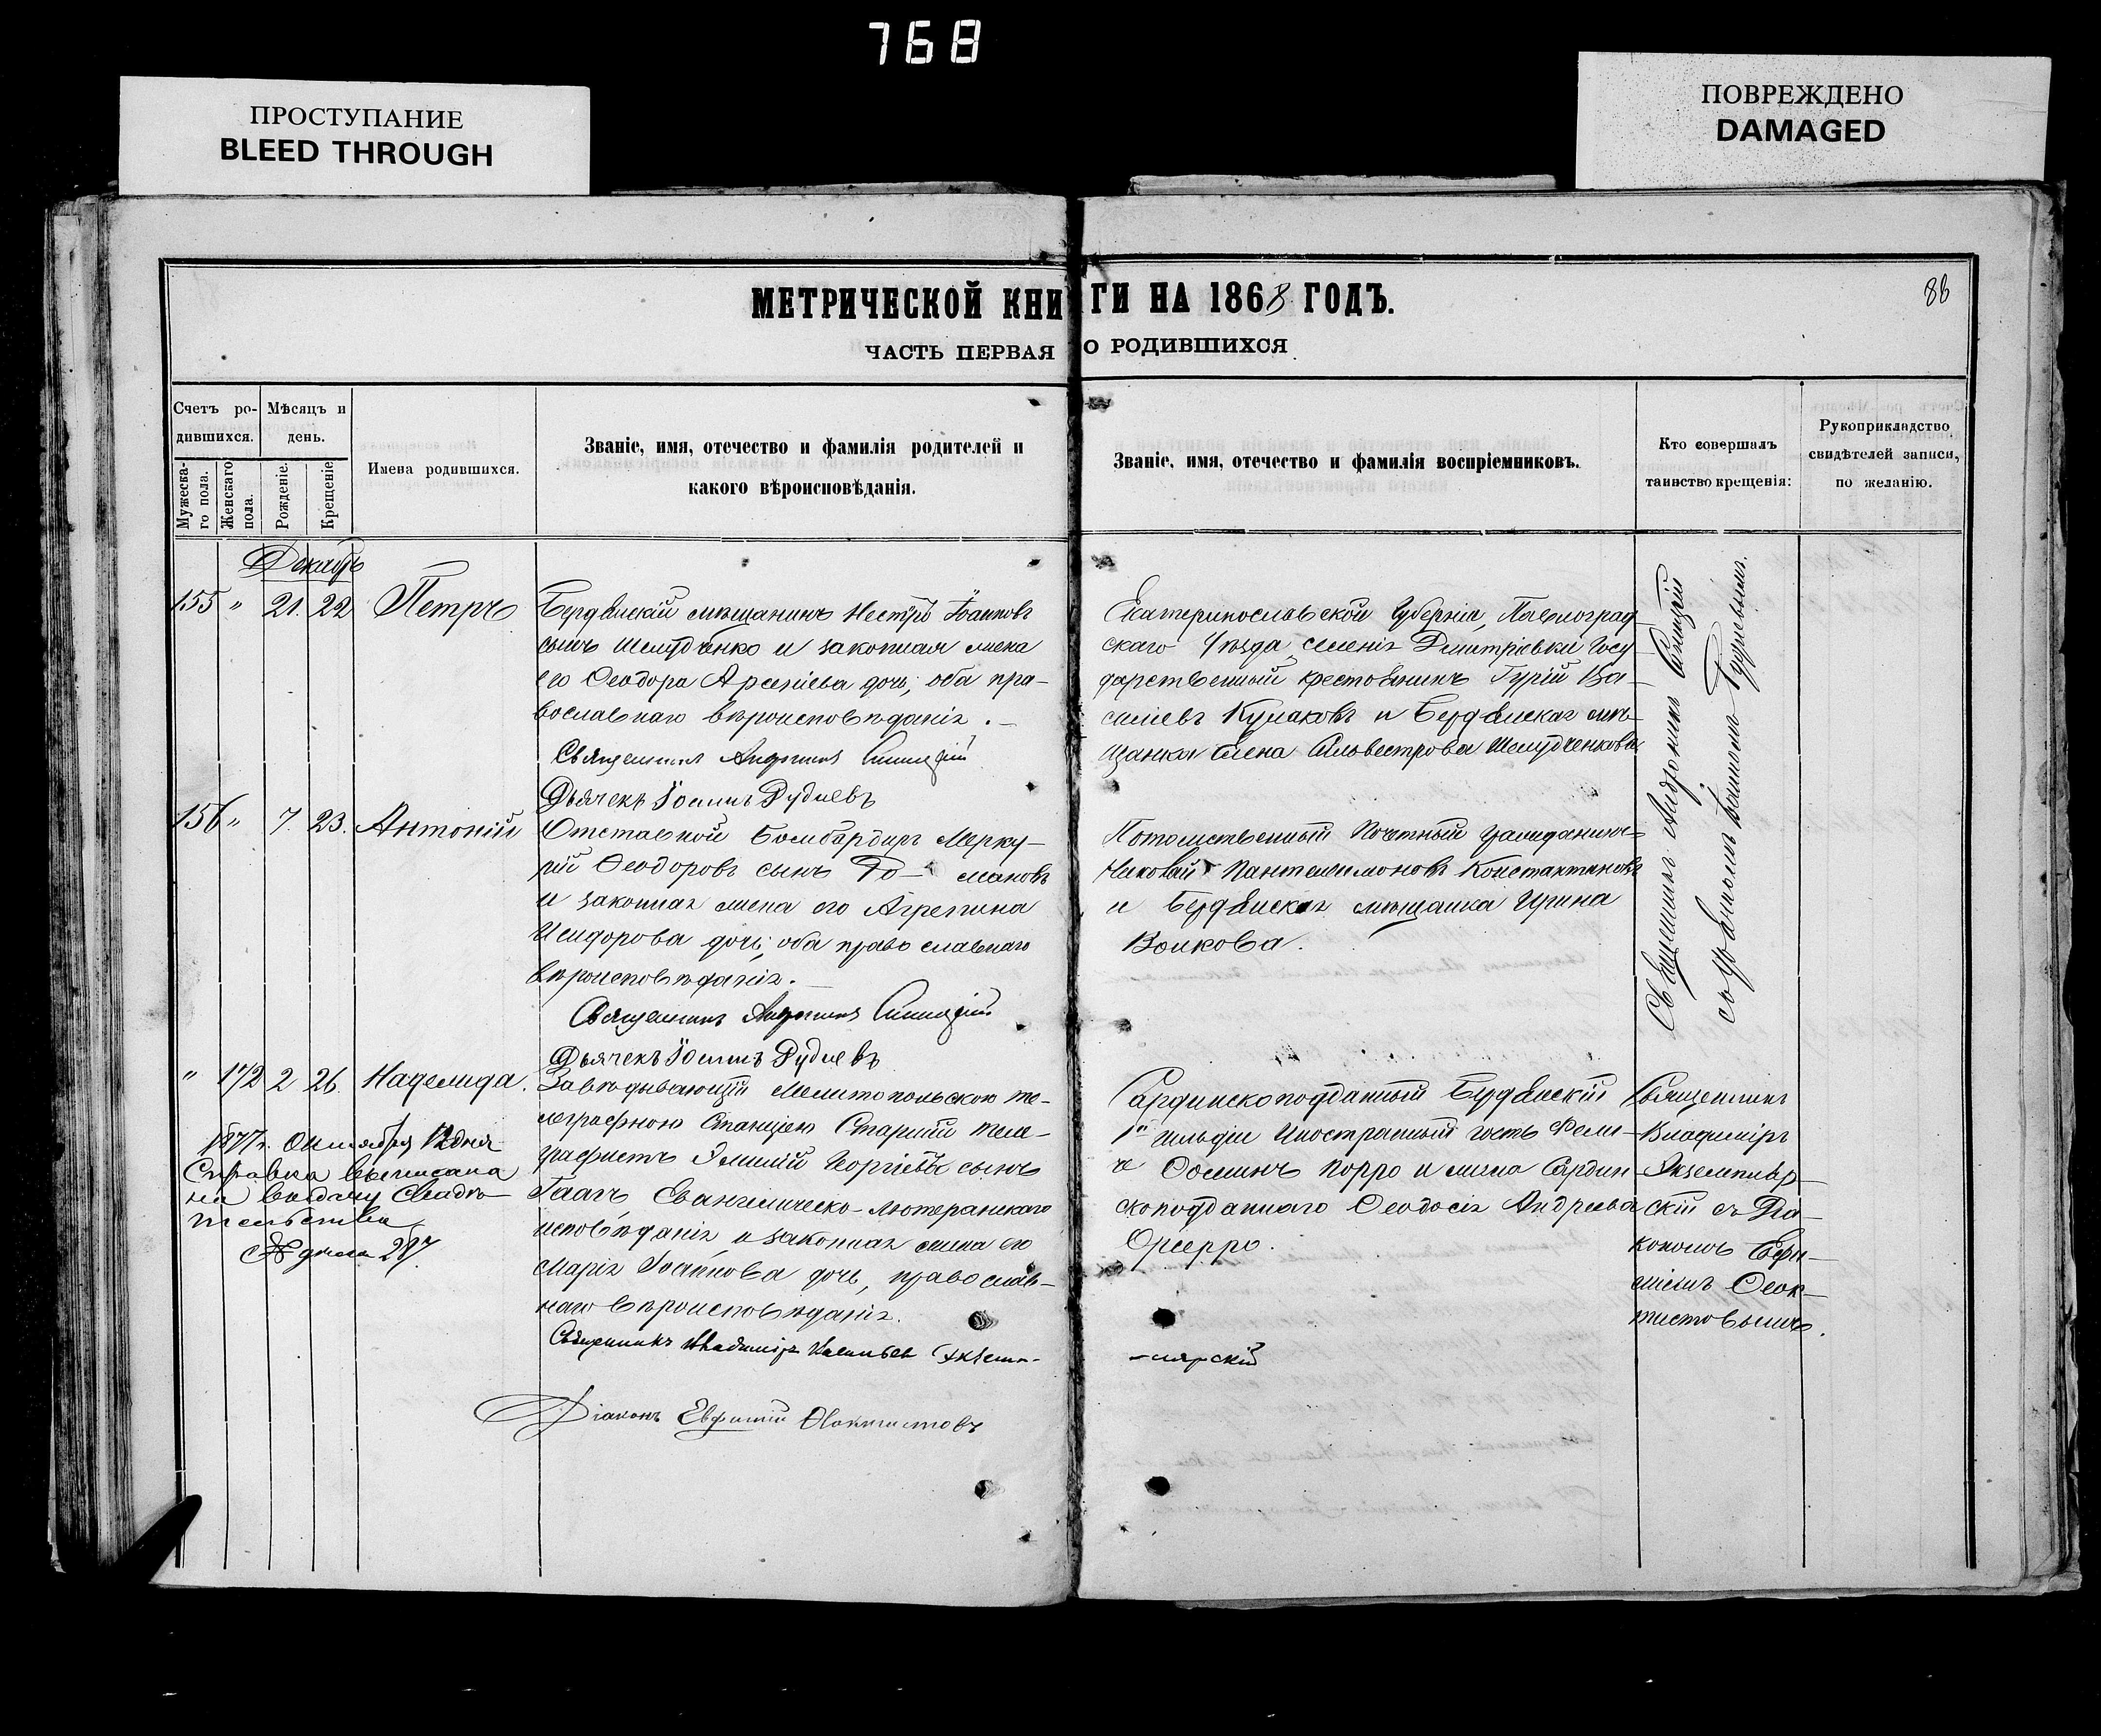 768
ПРОСТУПАНИЕ
BLEED THROUGH
ПОВРЕЖДЕНО
DAMAGED
МЕТРИЧЕСКОЙ КНИГИ НА 1868 ГОДЪ.
86
ЧАСТЬ ПЕРВАЯ О РОДИВШИХСЯ
Счетъ ро-
дившихся.
Мужеска-
го пола.
Женскаго
пола.
Мѣсяцъ и
день.
Рожденіе.
Крещеніе
Имена родившихся.
Званіе, имя, отечество и фамилія родителей и
какого вѣроисповѣданія.
Званіе, имя, отечество и фамилія воспріемниковъ.
Кто совершалъ
таинство крещенія:
Рукоприкладство
свидѣтелей записи,
по желанію.
Декабрь
155 " 21. 22 Петръ
Бердянскій мѣщанинъ Несторъ Іоанновъ
сынъ Шелудченко и законная жена
его Ѳеодора Арсеніева дочь, оба пра-
вославнаго вѣроисповѣданія.
Священникъ Андроникъ
Дьячекъ Іоаннъ Рудневъ
Екатеринославской Губерніи, Павлоград-
скаго Уѣзда, селенія Дмитріевки Госу-
дарственный крестьянинъ Гурій Ва-
силіевъ Кулаковъ и Бердянская мѣ-
щанка Елена Сильвестрова Шелудченкова
Священникъ Андроникъ
съ дьячкомъ Іоанномъ Рудневымъ.
156 " 7. 23. Антоній
Отставной Бомбардиръ Мерку-
рій Ѳеодоровъ сынъ Ро- мановъ
и законная жена его Агрепина
Исидорова дочь, оба православнаго
вѣроисповѣданія.
Священникъ Андроникъ
Дьячекъ Іоаннъ Рудневъ
Потомственный Почетный гражданинъ
Николай Пантелеимоновъ Константиновъ
и Бердянская мѣщанка Ирина
Волкова.
" 172 2 26 Надежда.
Завѣдывающій Мелитопольскою те-
леграфною Станціею Старшій теле-
графистъ Эмилій Георгіевъ сынъ
Гаагъ Евангелическо-Лютеранскаго
исповѣданія и законная жена его
Марія Іоаннова дочь, православ-
наго вѣроисповѣданія.
Священникъ Владиміръ Васильев Экземп-
-лярскій
Діаконъ Евфимій Ѳеоктистовъ
1877 г. Октября 12 дня
Справка выписана
на выдачу Свидѣ-
тельства
№ дѣла 287.
Сардинскоподданный Бердянскій
1й гильдіи Иностранный гость Фели-
Порро и жена Сардин-
скоподданнаго Ѳеодосія Андреева
Священникъ
Владиміръ
Экземпляр-
скій съ Діа-
кономъ Евфи-
міемъ Ѳеок-
тистовымъ.